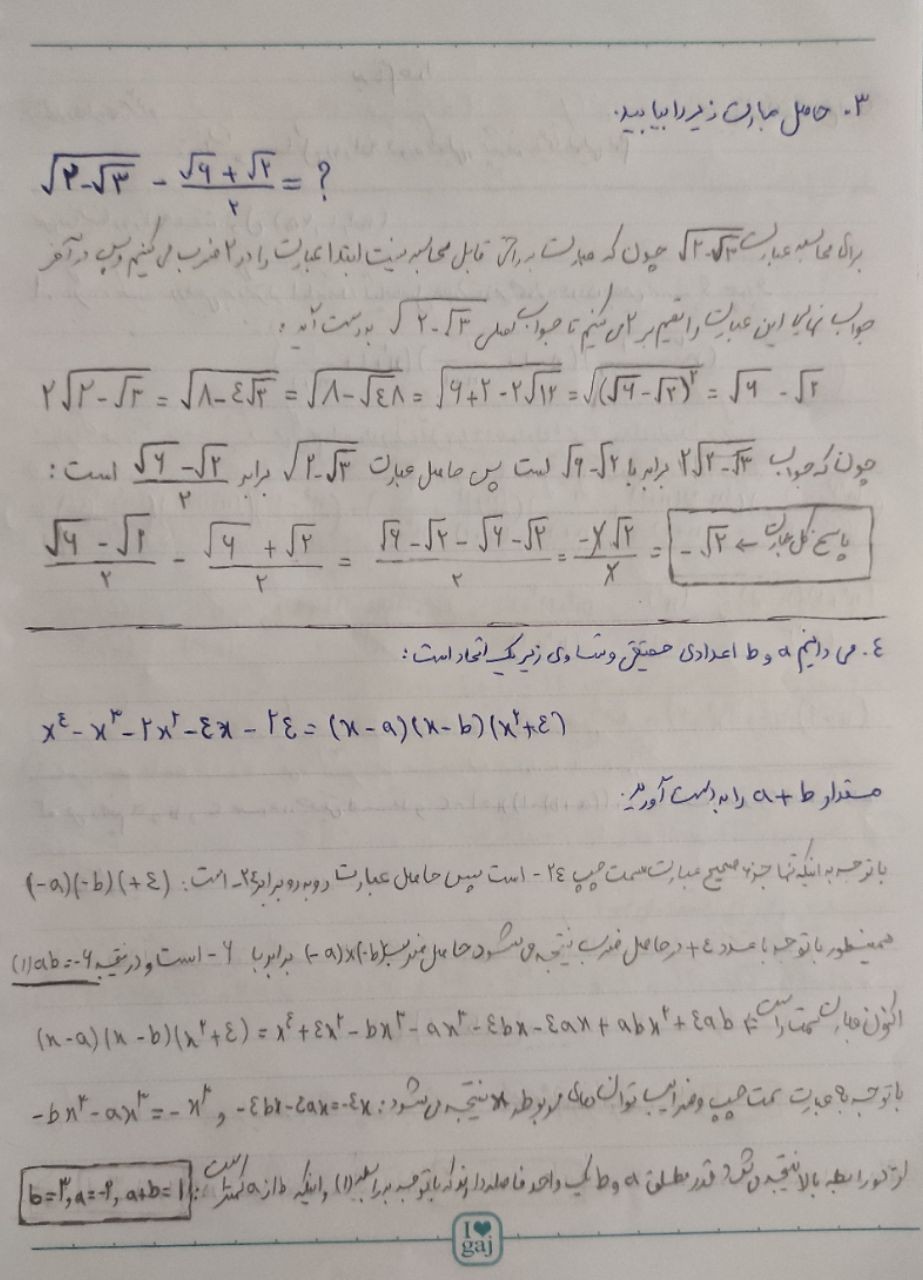 ۳. حاصل عبارت زیر را بیابید.
√(۲-√۳) - (√۶ + √۲)/۲ = ?
برای محاسبه عبارت √(۲-√۳) چون که عبارت به راحتی قابل محاسبه نیست ابتدا عبارت را در ۲ ضرب می کنیم و سپس در آخر
جواب نهایی این عبارت را تقسیم بر ۲ می کنیم تا جواب اصلی √(۲-√۳) به دست آید :
۲√(۲-√۳) = √(۸-٤√۳) = √(۸-√٤۸) = √(۶+۲-۲√۱۲) = √((√۶-√۲)^۲) = √۶ - √۲
چون که جواب ۲√(۲-√۳) برابر با √۶-√۲ است پس حاصل عبارت √(۲-√۳) برابر (√۶-√۲)/۲ است :
(√۶ - √۲)/۲ - (√۶ + √۲)/۲ = (√۶ - √۲ - √۶ - √۲)/۲ = (-۲√۲)/۲ = -√۲ ← پاسخ کل عبارت
٤. می دانیم a و b اعدادی حقیقی و تساوی زیر یک اتحاد است :
x^٤ - x^۳ - ۲x^۲ - ٤x - ۲٤ = (x-a)(x-b)(x^۲+٤)
مقدار a+b را به دست آورید.
با توجه به اینکه تنها جزء صحیح عبارت سمت چپ -۲٤ است پس حاصل عبارت رو به رو برابر -۲٤ است : (-a)(-b)(+٤)
همینطور با توجه با عدد +٤ در حاصل ضرب نتیجه می شود حاصل ضرب (-a)x(-b) برابر با -۶ است و در نتیجه ab=-۶ (۱)
اکنون عبارت سمت راست : (x-a)(x-b)(x^۲+٤) = x^٤+٤x^۲-bx^۳-ax^۳-٤bx-٤ax+abx^۲+٤ab
با توجه به عبارت سمت چپ و ضرایب توان های مربوطه x نتیجه می شود : -bx^۳-ax^۳=-x^۳ و -٤bx-٤ax=-٤x
از دو رابطه بالا نتیجه می شود قدر مطلق a و b یک واحد فاصله دارند که با توجه به رابطه (۱) و اینکه b از a کمتر است : b=۳, a=-۲, a+b=۱
I ♥
gaj